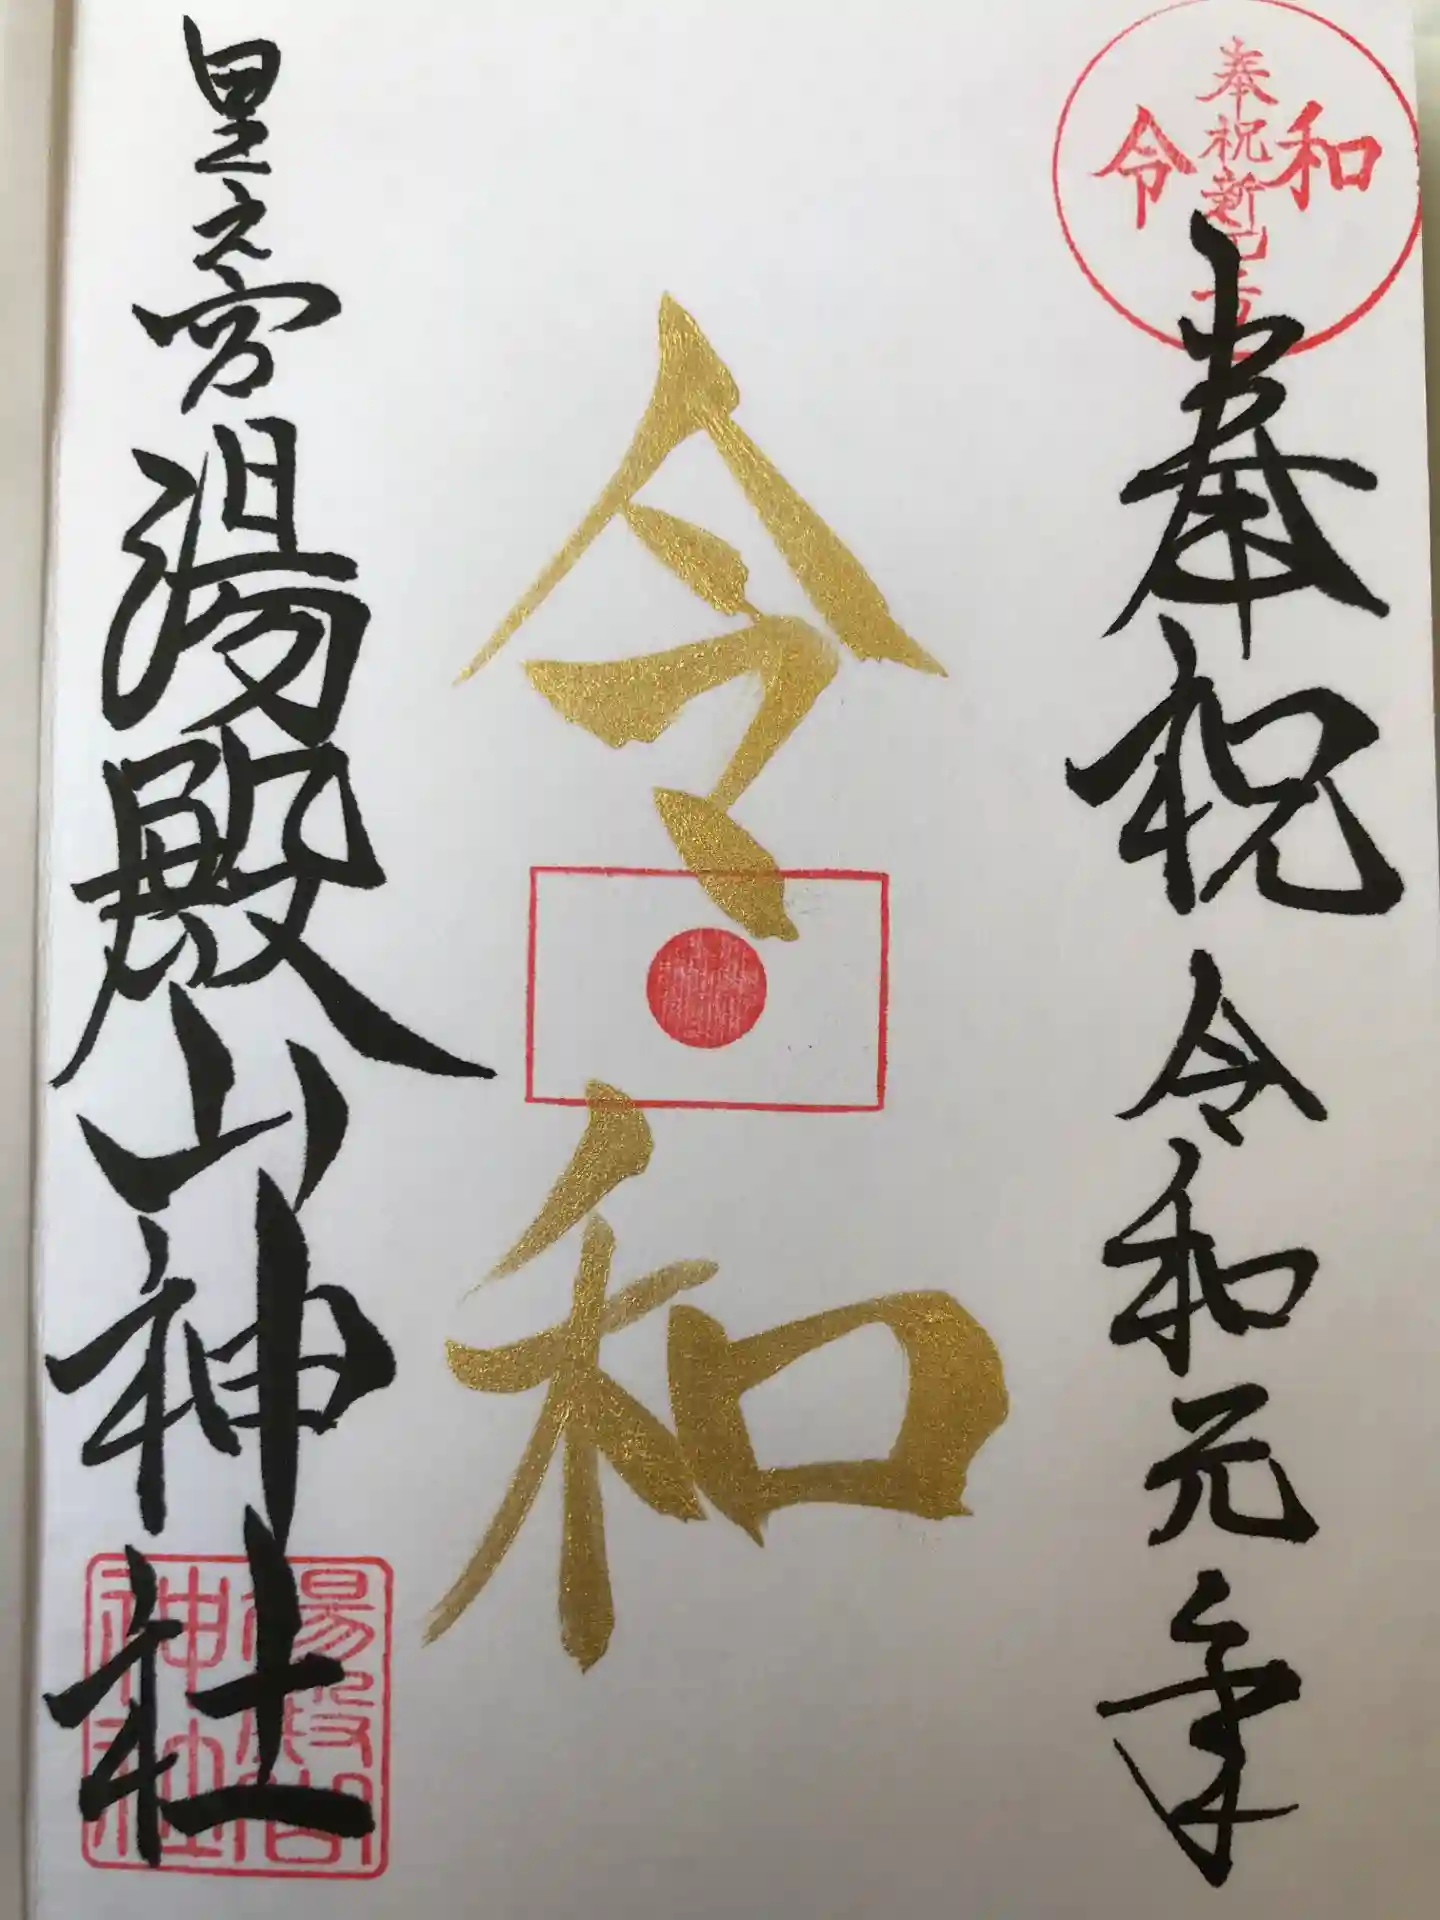 奉祝新元号
令和
奉祝 令和元年
令和
里之宮 湯殿山神社
湯殿
神社